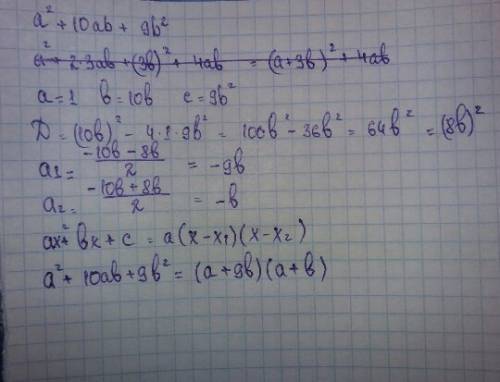 a² + 10ab + 9b²
a² + 2·3ab + (3b)² + 4ab = (a+3b)² + 4ab
a=1 b=10b c=9b²
D = (10b)² - 4·1·9b² = 100b² - 36b² = 64b² = (8b)²
a1 = (-10b - 8b)/2 = -9b
a2 = (-10b + 8b)/2 = -b
ax² + bx + c = a(x-x₁)(x-x₂)
a² + 10ab + 9b² = (a+9b)(a+b)